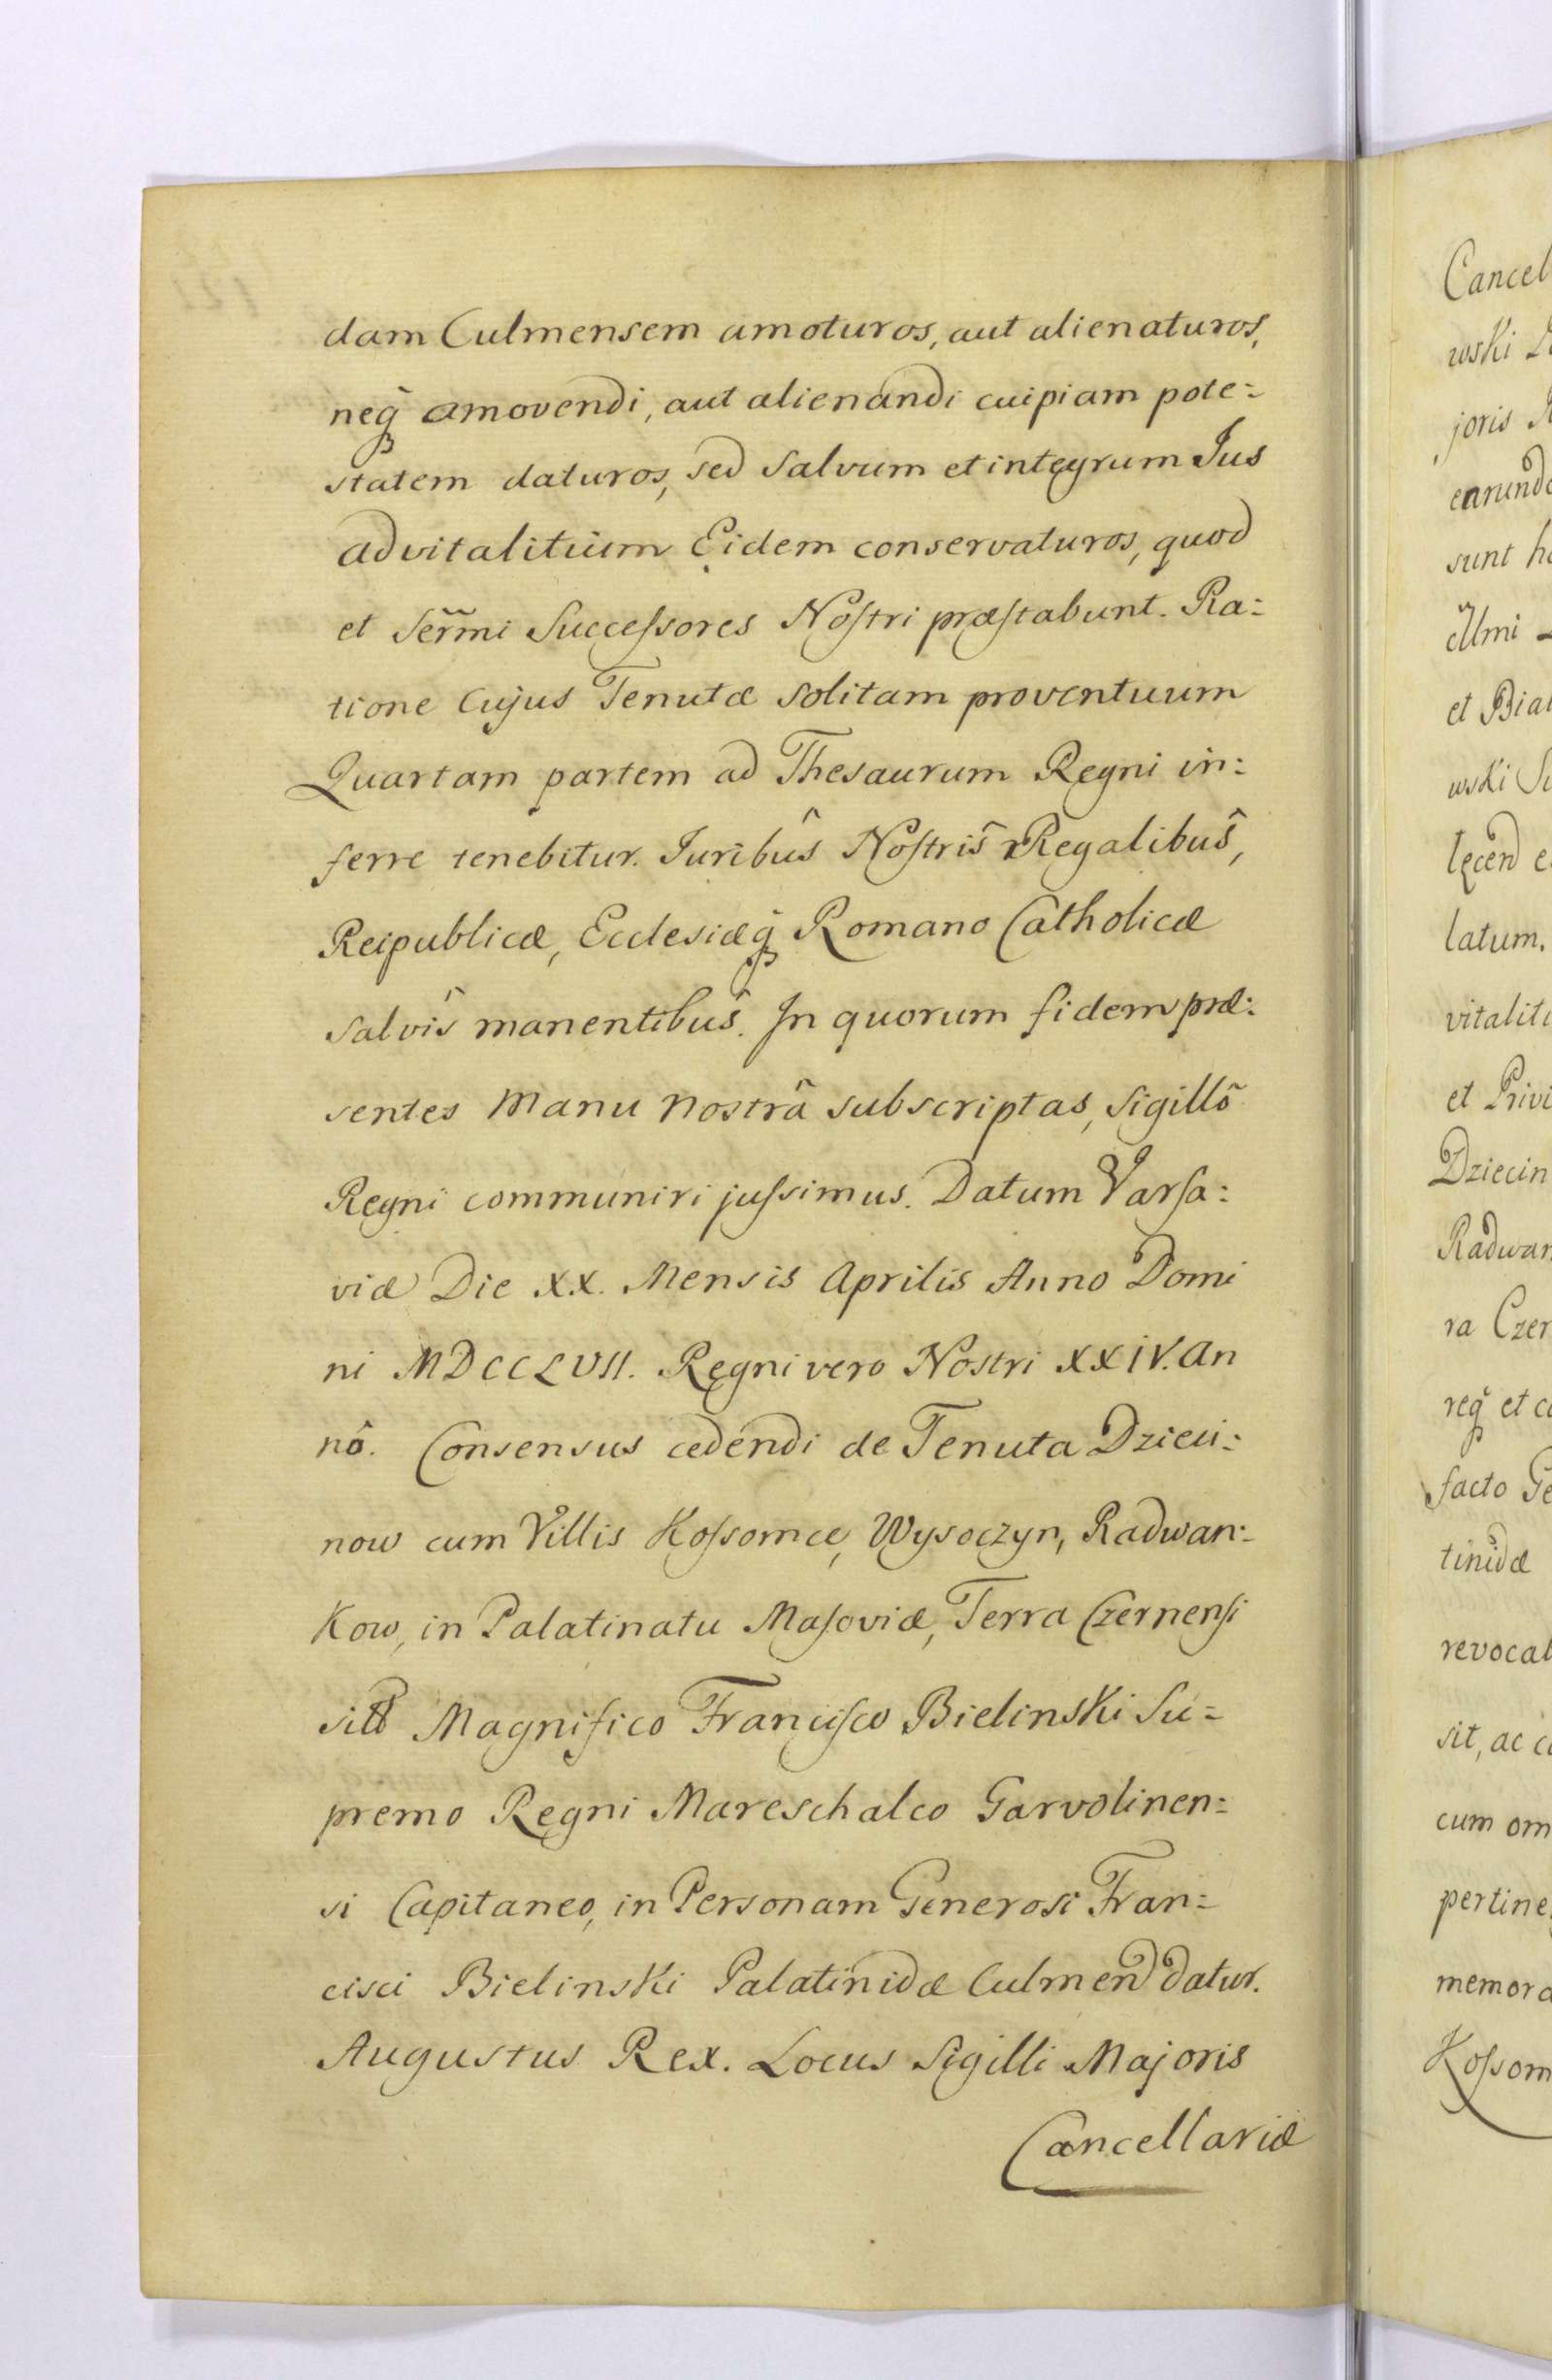 dam Culmensem amoturos, aut alienaturos,
neq̃ amovendi, aut alienandi cuipiam pote=
statem daturos, sed salvum et integrum Jus
advitalitium Eidem conservaturos, quod
et Serm̃i Successores Nostri præstabunt. Ra=
tione Cujus Tenutæ solitam proventuum
Quartam partem ad Thesaurum Regni in=
ferre tenebitur. Juribûs Nostrîs Regalibûs,
Reipublicæ, Ecclesiæq̃ Romano Catholicæ
salvîs manentibûs. In quorum fidem præ=
sentes Manu Nostrâ subscriptas, Sigillô
Regni communiri jussimus. Datum Varsa=
viæ Die XX. Mensis Aprilis Anno Domi
ni MDCCLVII. Regni vero Nostri XXIV. An
nô. Consensus cedendi de Tenuta Dzieci=
now cum Villis Kossomce, Wysoczyn, Radwan=
Kow, in Palatinatu Masoviæ, Terra Czernensi
Magnifico Francisco Bielinski Su=
premo Regni Mareschalco Garvolinen=
si Capitaneo, in Personam Generosi Fran=
cisci Bielinski Palatinidæ Culmen datur.
Augustus Rex. Locus Sigilli Majoris
Cancellariæ
Cancel
wski
joris
earund
sunt
Illmi
et Bial
wski
lecen
latum.
vitaliti
et Privi
Dziecin
Radwan
ra Czer
req̃ et
facto
tinidæ
revocal
sit, ac
cum om
pertine
memora
Kossom